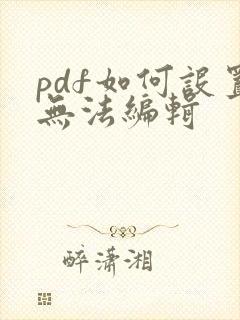 pdf如何設置
無法編輯
醉瀟湘